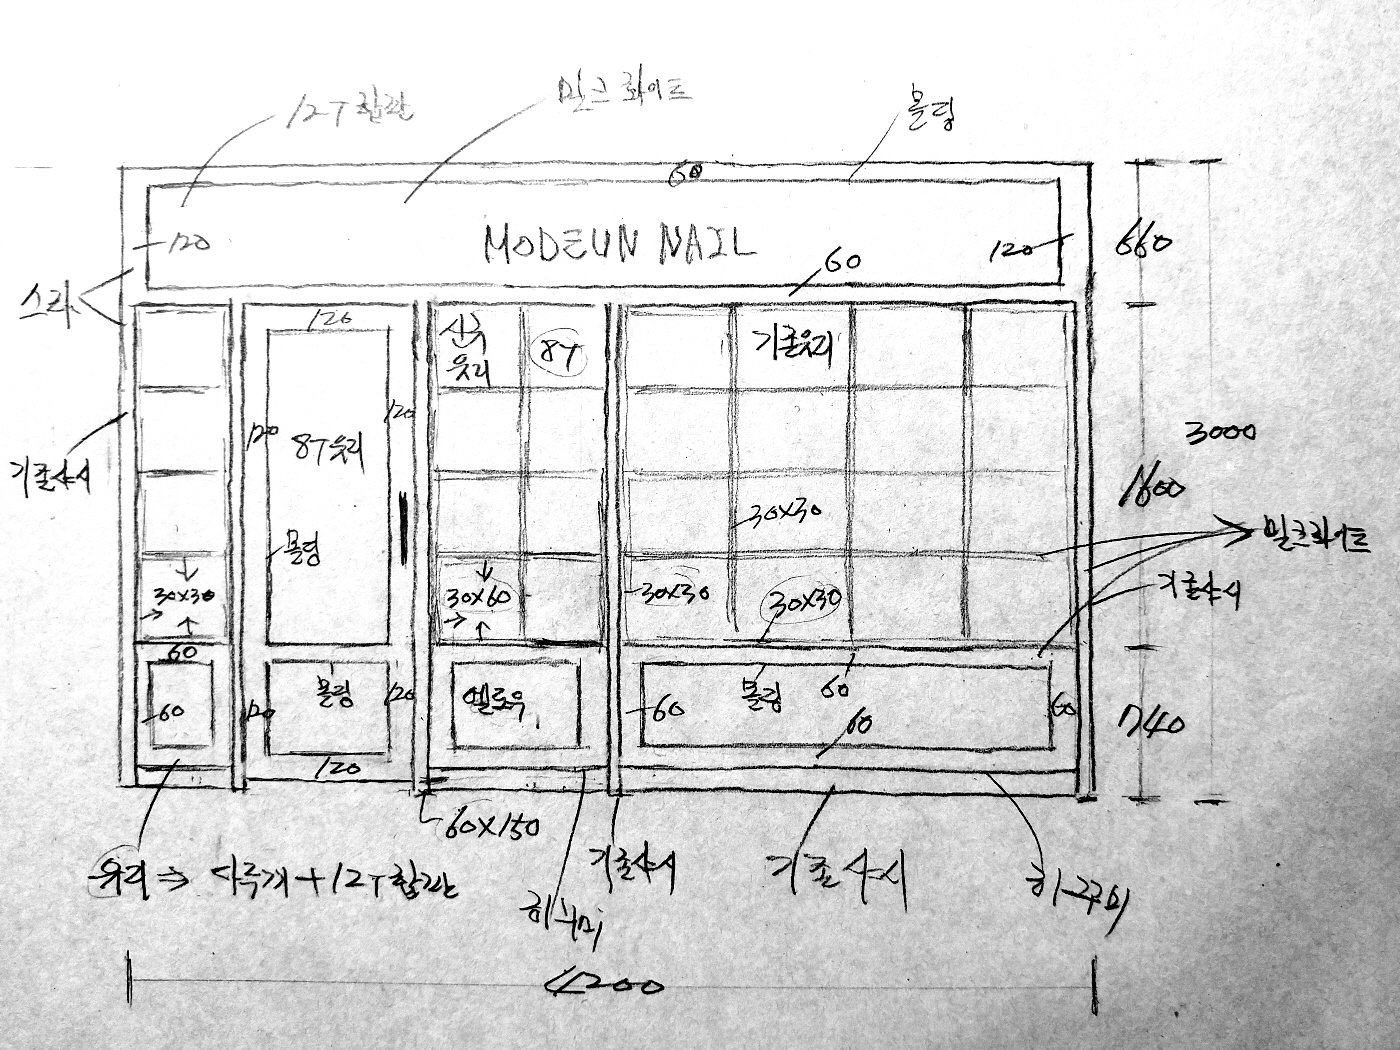 12T 합판
밀크 화이트
몰딩
60
120
MODEUN NAIL
120
660
60
스라
120
신규
유리
8T
기존유리
120
120
8T유리
3000
기존샤시
1600
30x30
몰딩
밀크화이트
30x30
30x60
30x30
30x30
기존샤시
60
몰딩
120
옐로우
몰딩
60
60
120
60
60
60
740
120
60x150
기존샤시
기존 샤시
유리 ⇒ 다루개 + 12T 합판
4200